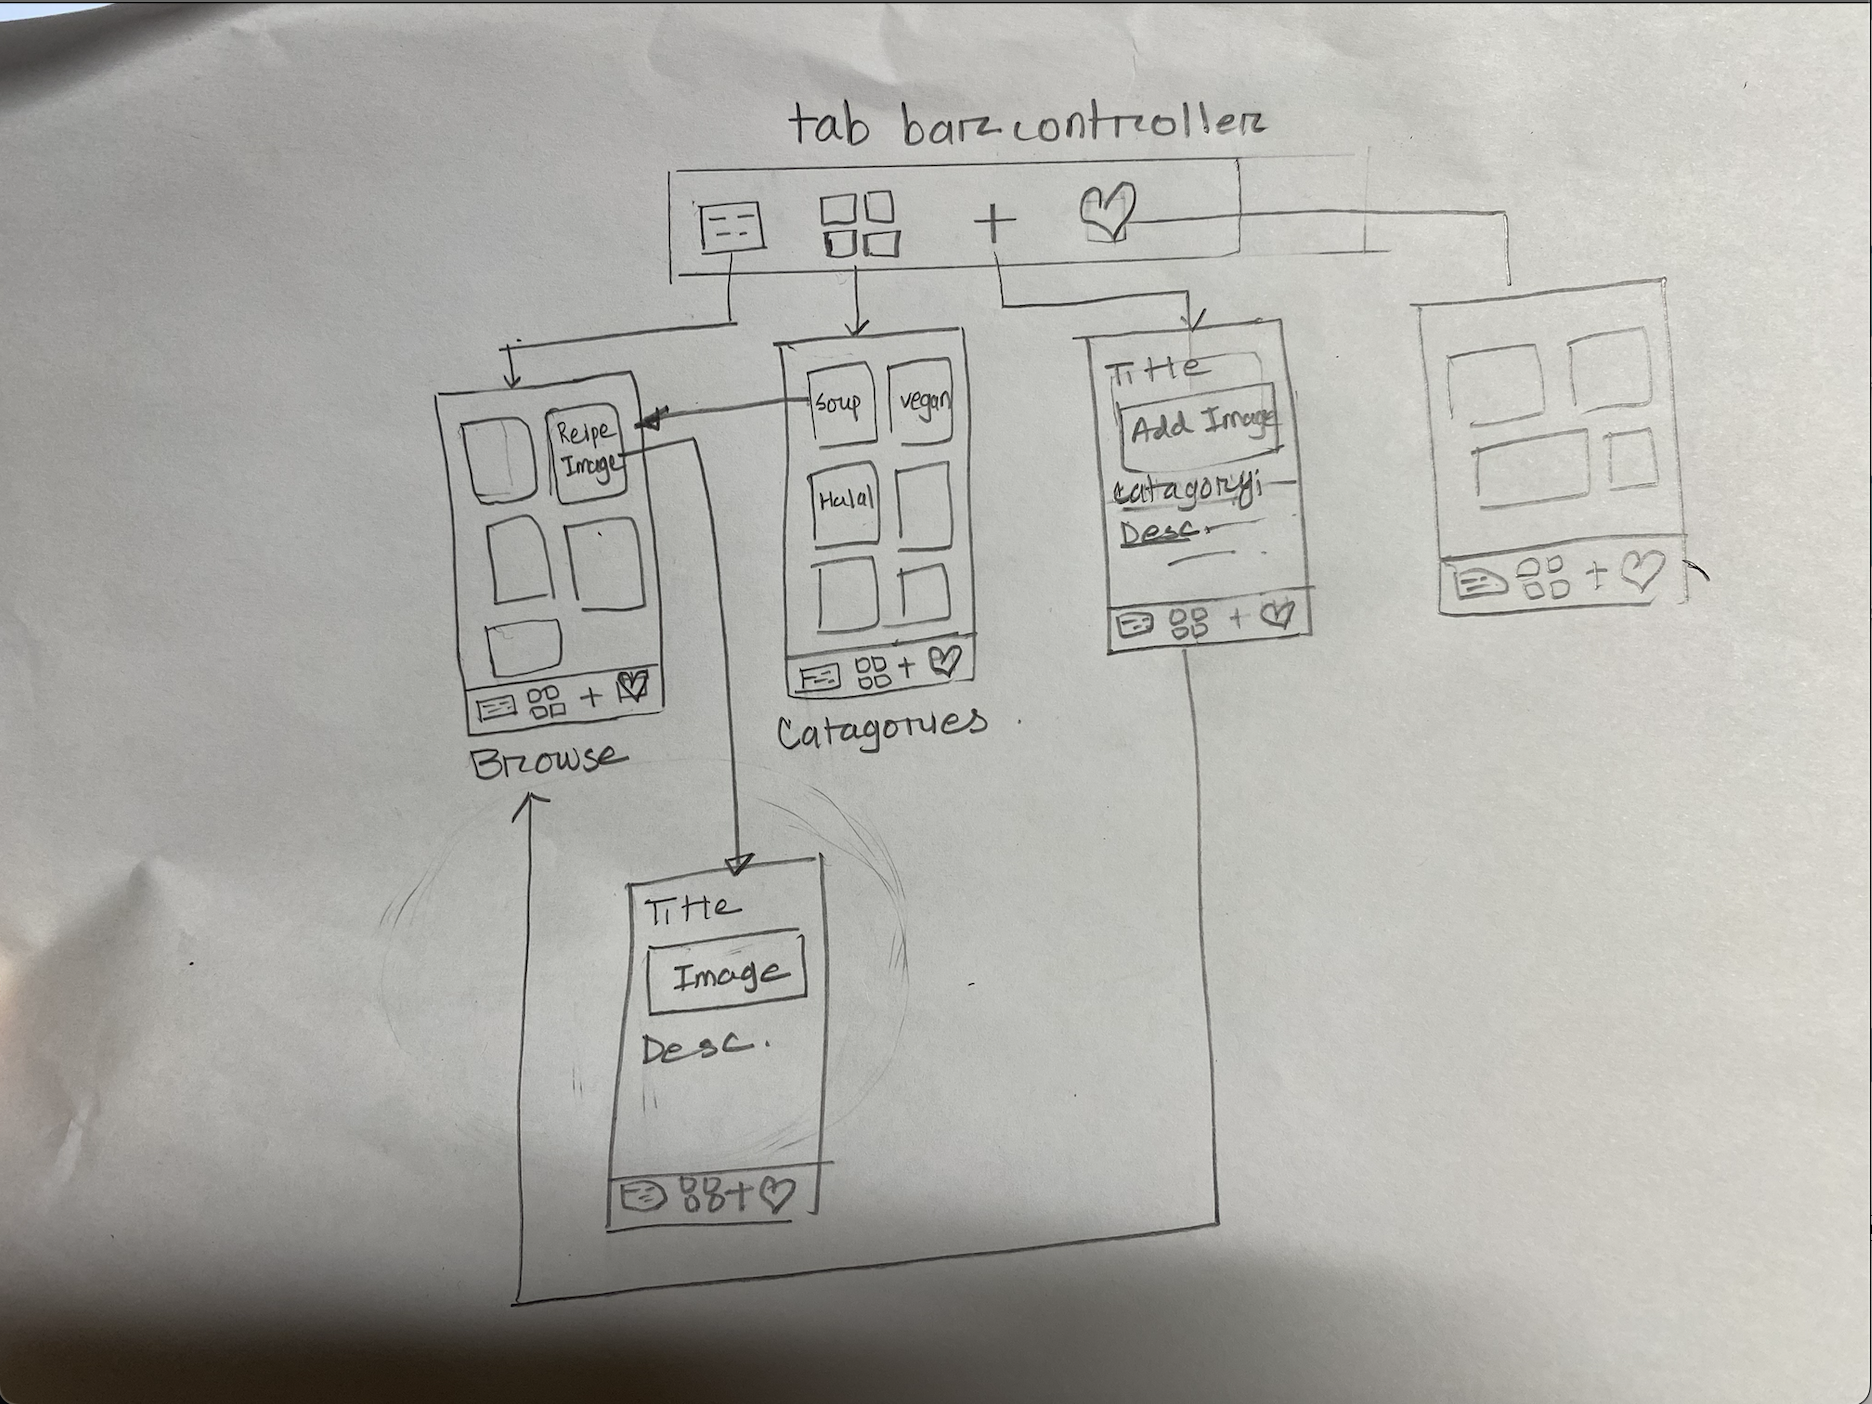 tab bar controller
Reipe
Image
Browse
Soup
vegan
Halal
Catagories
Title
Add Image
Catagory:
Desc.
Title
Image
Desc.